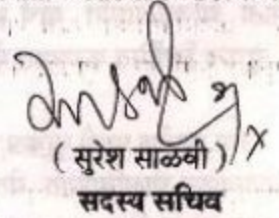 ( सुरेश साळवी )
सदस्य सचिव